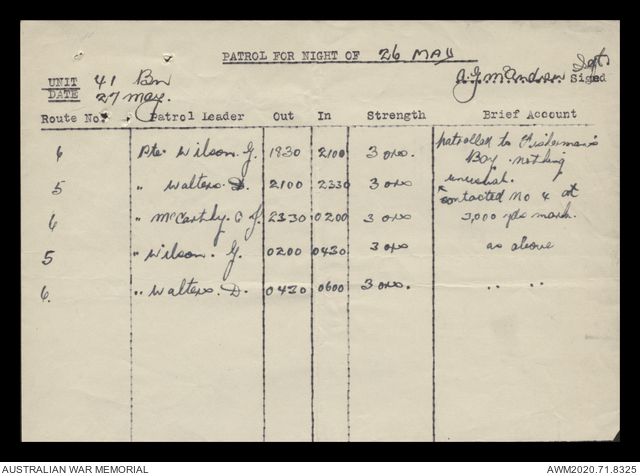 PATROL FOR NIGHT OF 26 MAY
UNIT 41 Bn Sgt
DATE 27 May. Signed
Route No. Patrol Leader Out In Strength Brief Account
6 Pte Wilson. G. 1830 2100 3 ors. patrolled to Fisherman's
Bay. nothing
unusual.
5 " Walters. D. 2100 2330 3 ors. contacted No 4 at
6 " McCarthy. C J. 2330 0200 3 ors 2,000 yds mark.
5 " Wilson. G. 0200 0430 3 ors as above
6. " Walters. D. 0430 0600 3 ors. " "
AUSTRALIAN WAR MEMORIAL AWM2020.71.8325